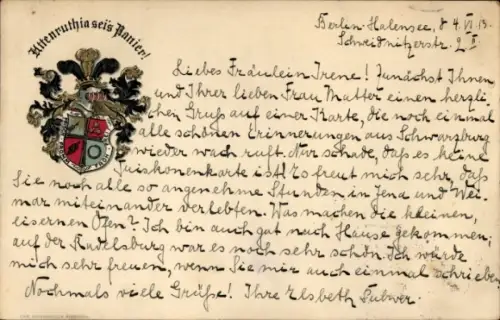 Altenruthia seis Panier!
Berlin-Halensee, d. 4. VI. 13.
Schweidnitzerstr. 2 I
Liebes Fräulein Irene! Zunächst Ihnen
und Ihrer lieben Frau Mutter einen herzli-
chen Gruß auf einer Karte, die noch einmal
alle schönen Erinnerungen aus Schwarzburg
wieder wach ruft. Nur schade, daß es keine
Suiskonenkarte ist! Es freut mich sehr, daß
Sie noch alle so angenehme Stunden in Jena und Wei-
mar miteinander verlebten. Was machen die kleinen,
eisernen Öfen? Ich bin auch gut nach Hause gekommen;
auf der Rudelsburg war es noch sehr schön. Ich würde
mich sehr freuen, wenn Sie mir auch einmal schrieben.
Nochmals viele Grüße! Ihre Elsbeth